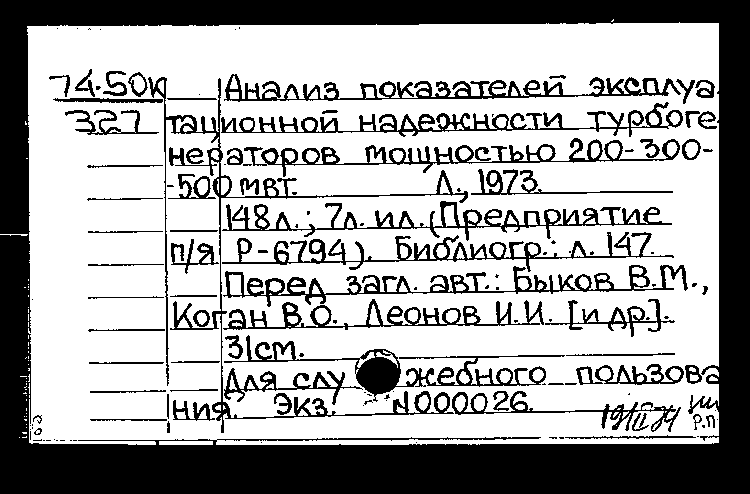 74.50к Анализ показателей эксплуа
327 тационной надежности турбоге
нераторов мощностью 200-300-
-500 мвт. Л., 1973.
148л.; 7л. ил. (Предприятие
п/я Р-6794). Библиогр.: л. 147.
Перед загл. авт.: Быков В.М.,
Коган В.О., Леонов И.И. [и др.].
31см.
Для служебного пользова
ния. Экз. №000026.
Р.П